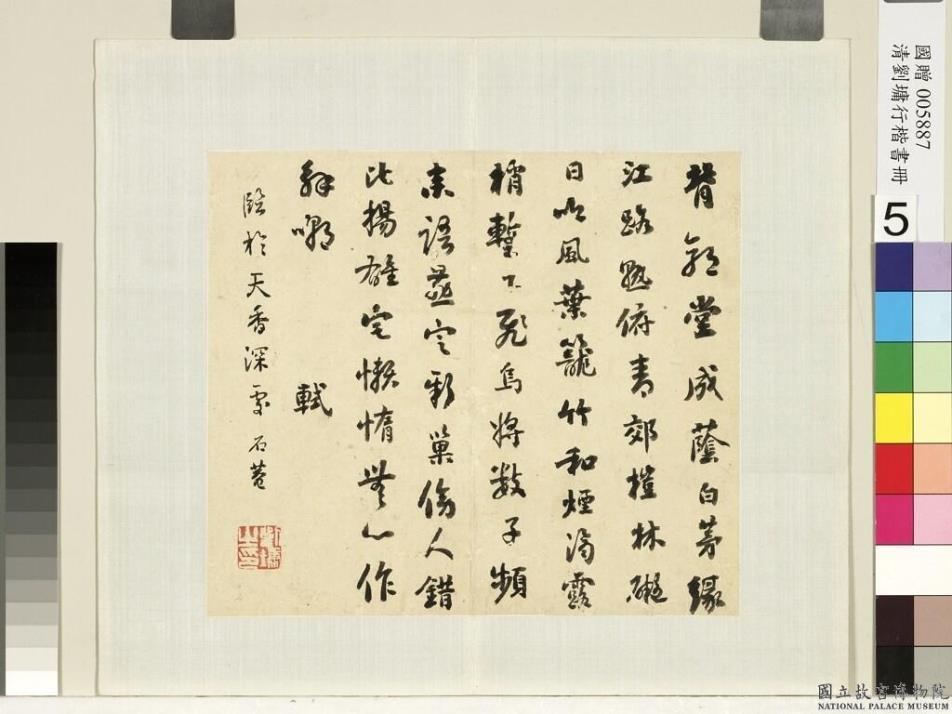 背郭堂成蔭白茅緣
江路熟俯青郊榿林礙
日吟風葉籠竹和煙滴露
梢暫下飛烏將數子頻
來語燕定新巢傍人錯
比揚雄宅懶惰無心作
解嘲 軾
臨於天香深處 石菴
劉墉之印
國贈 005887
清劉墉行楷書冊
5
國立故宮博物院
NATIONAL PALACE MUSEUM